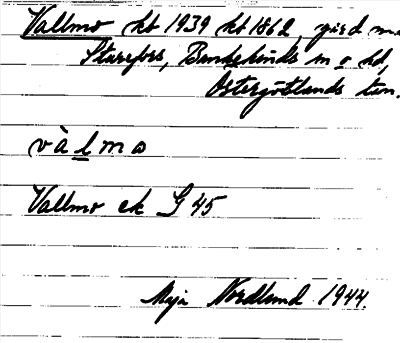 Vallmo kb 1939 kb 1862, gård
Sturefors, Bankekinds sn o hd,
Östergötlands län.
vàlmo
Vallmo ek G 45
Maja Nordlund 1944.